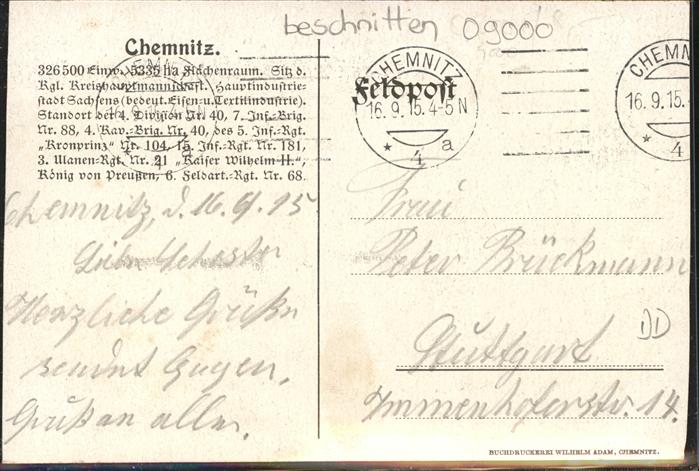 beschnitten 09000
Chemnitz.
326500 Einw. 5335 ha Flächenraum. Sitz d.
Kgl. Kreishauptmannschaft. Hauptindustrie-
stadt Sachsens (bedeut. Eisen- u. Textilindustrie).
Standort der 4. Division Nr. 40, 7. Inf.-Brig.
Nr. 88, 4. Kav.-Brig. Nr. 40, des 5. Inf.-Rgt.
"Kronprinz" Nr. 104, 15. Inf.-Rgt. Nr. 181,
3. Ulanen-Rgt. Nr. 21 "Kaiser Wilhelm II.",
König von Preußen, 6. Feldart.-Rgt. Nr. 68.
Chemnitz, d. 16.9.15
Herzliche Grüße
sendet Eugen.
Gruß an alle.
CHEMNITZ
Feldpost
16.9.15.4-5N
* 4 a
CHEMNITZ
16.9.15.
* 4
Frau
Peter Brückmann
Stuttgart
Immenhoferstr. 14.
DD
BUCHDRUCKEREI WILHELM ADAM, CHEMNITZ.